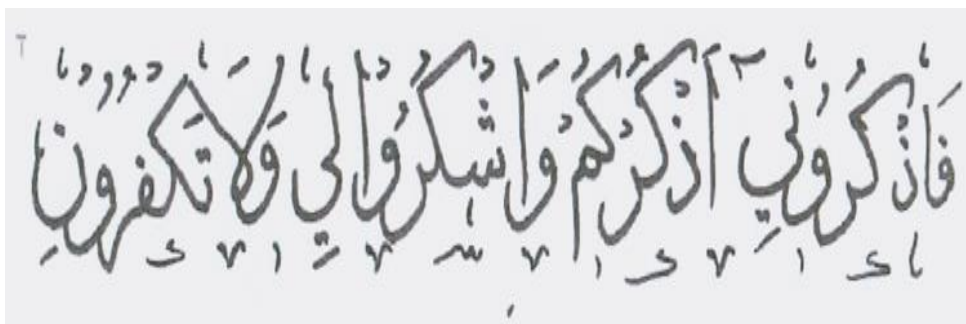 فَاذْكُرُوْنِيْٓ اَذْكُرْكُمْ وَاشْكُرُوْا لِيْ وَلَا تَكْفُرُوْنِ